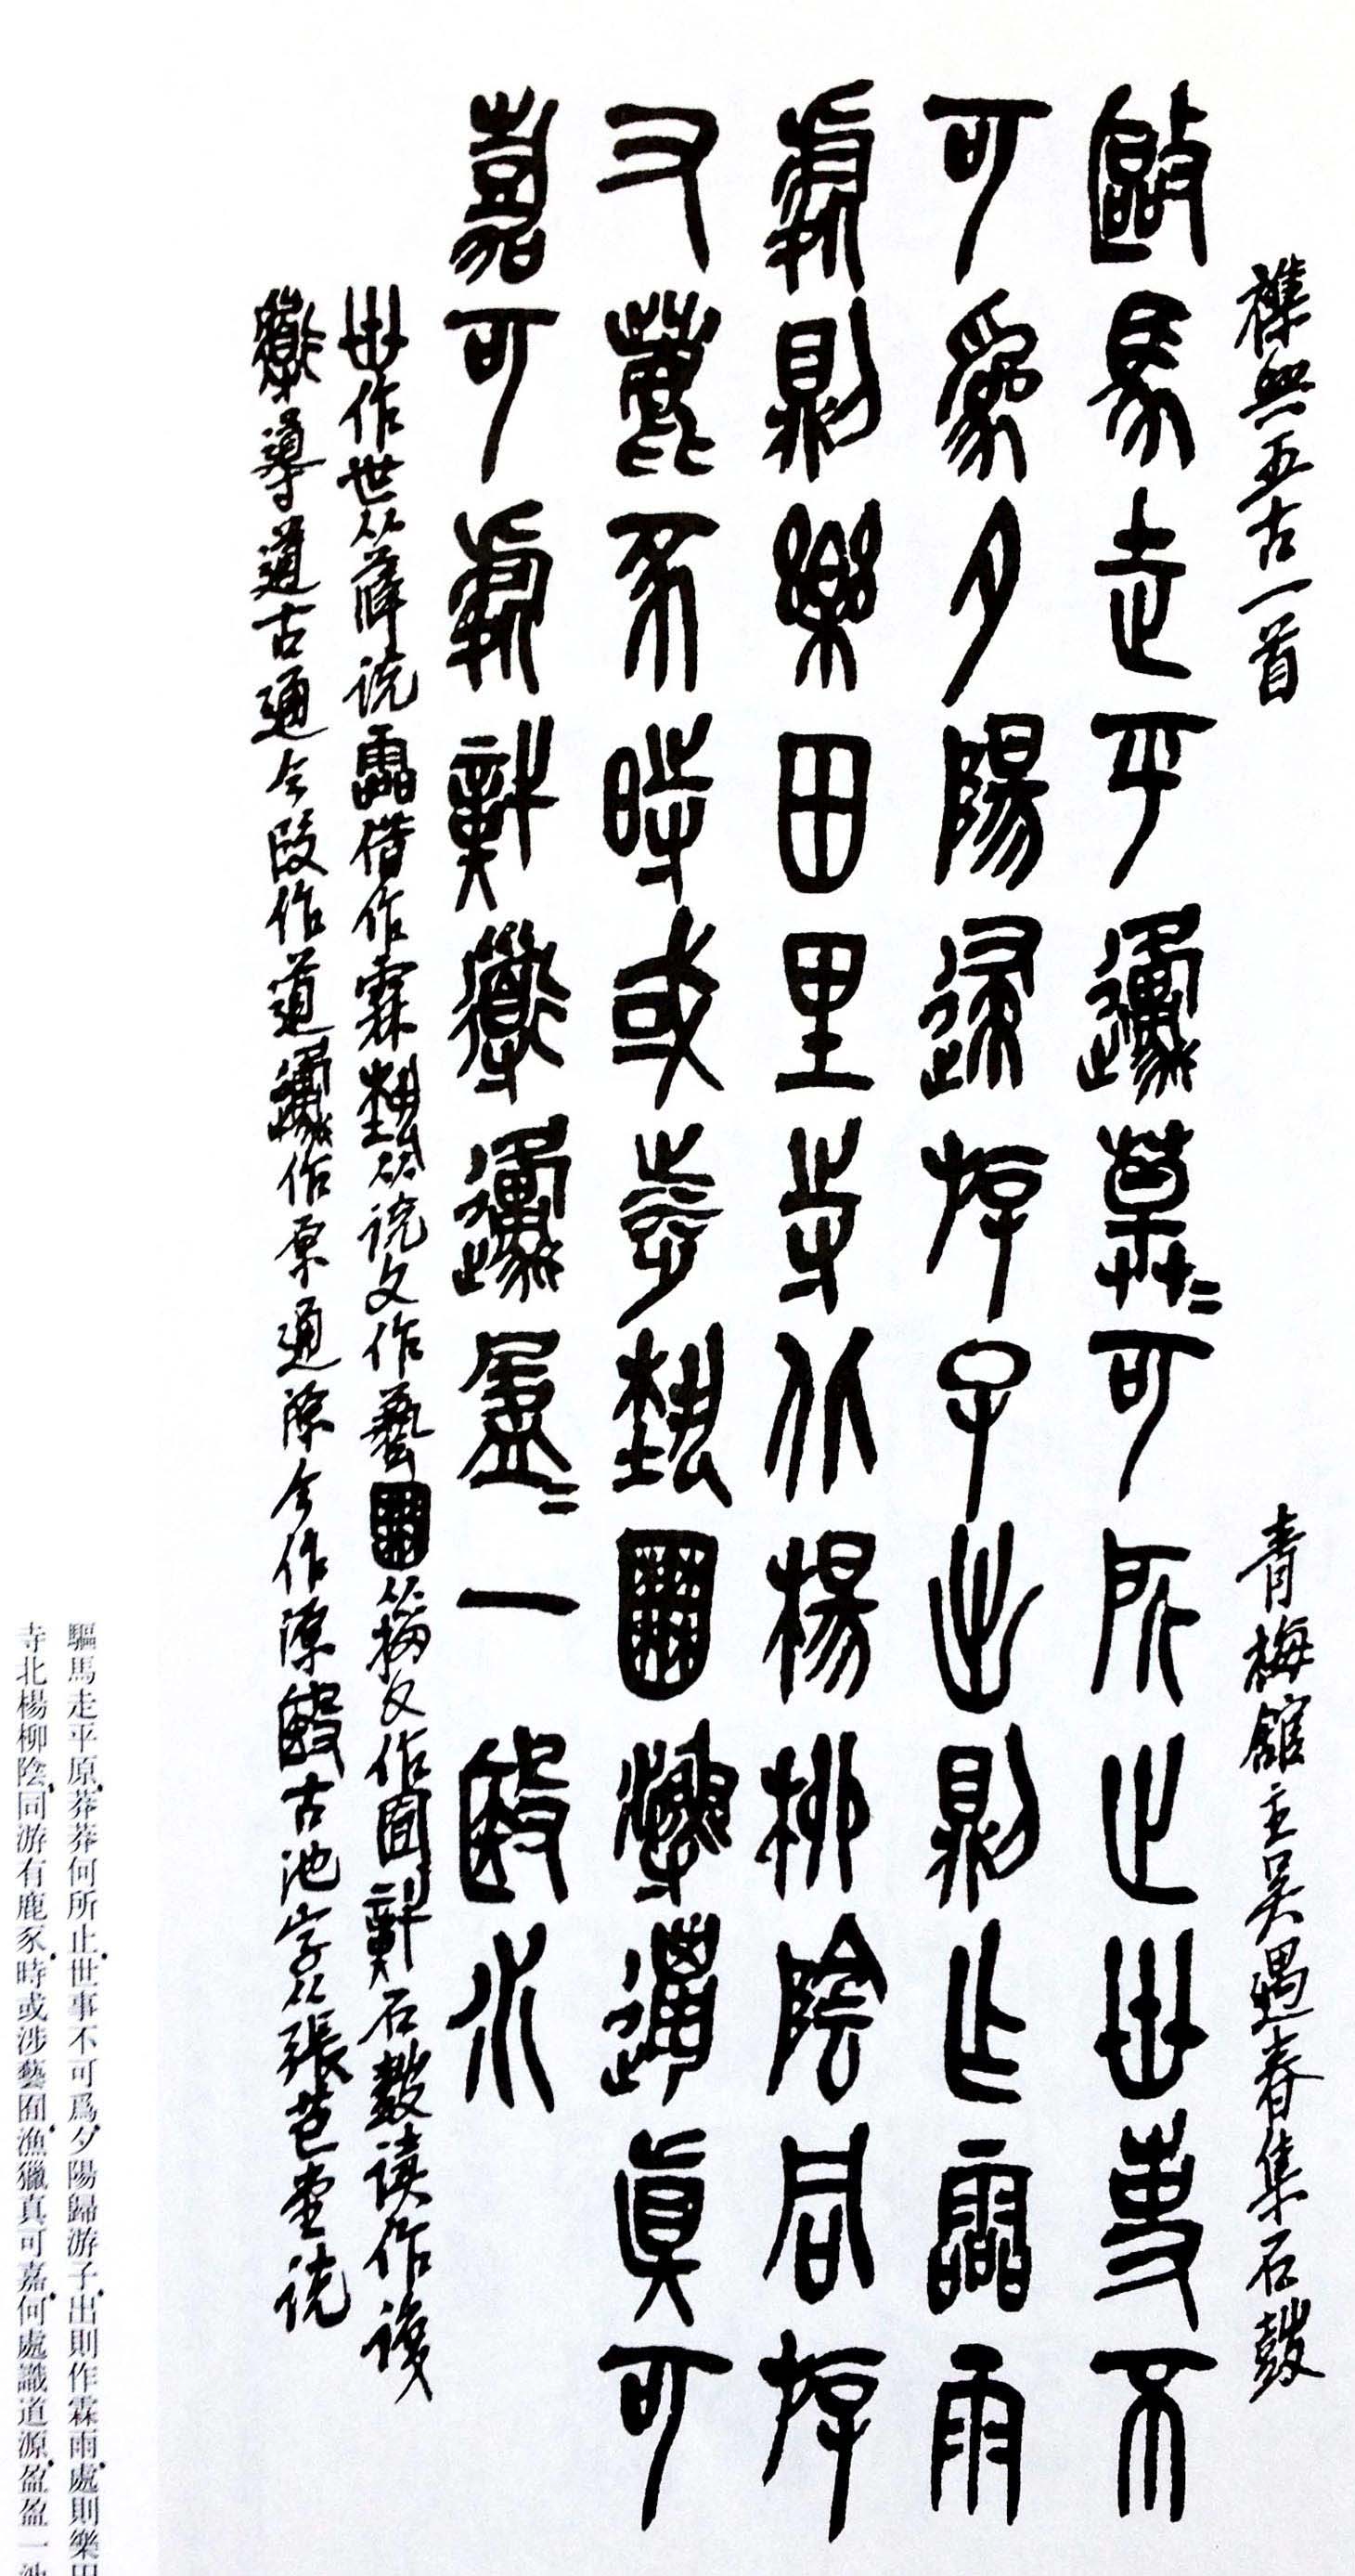 襍興五古一首　青梅館主吳遇春集石鼓
敺馬走平邍莽＝可所止世事不
可爲夕陽歸斿子出則乍霝雨
處則樂田里寺北楊柳陰同斿
又麀豕時或涉埶囿𤅊邋眞可
嘉可處識邍盈＝一殹水
丗作世從薛說霝借作霖埶從說文作藝囿籀文作囿石鼓讀作識
導道古通今段作道邍作原通源今作源殹古池字從張芑堂說
驅馬走平原莽莽何所止世事不可爲夕陽歸游子出則作霖雨處則樂田
寺北楊柳陰同游有鹿豕時或涉藝囿漁獵真可嘉何處識道源盈盈一池